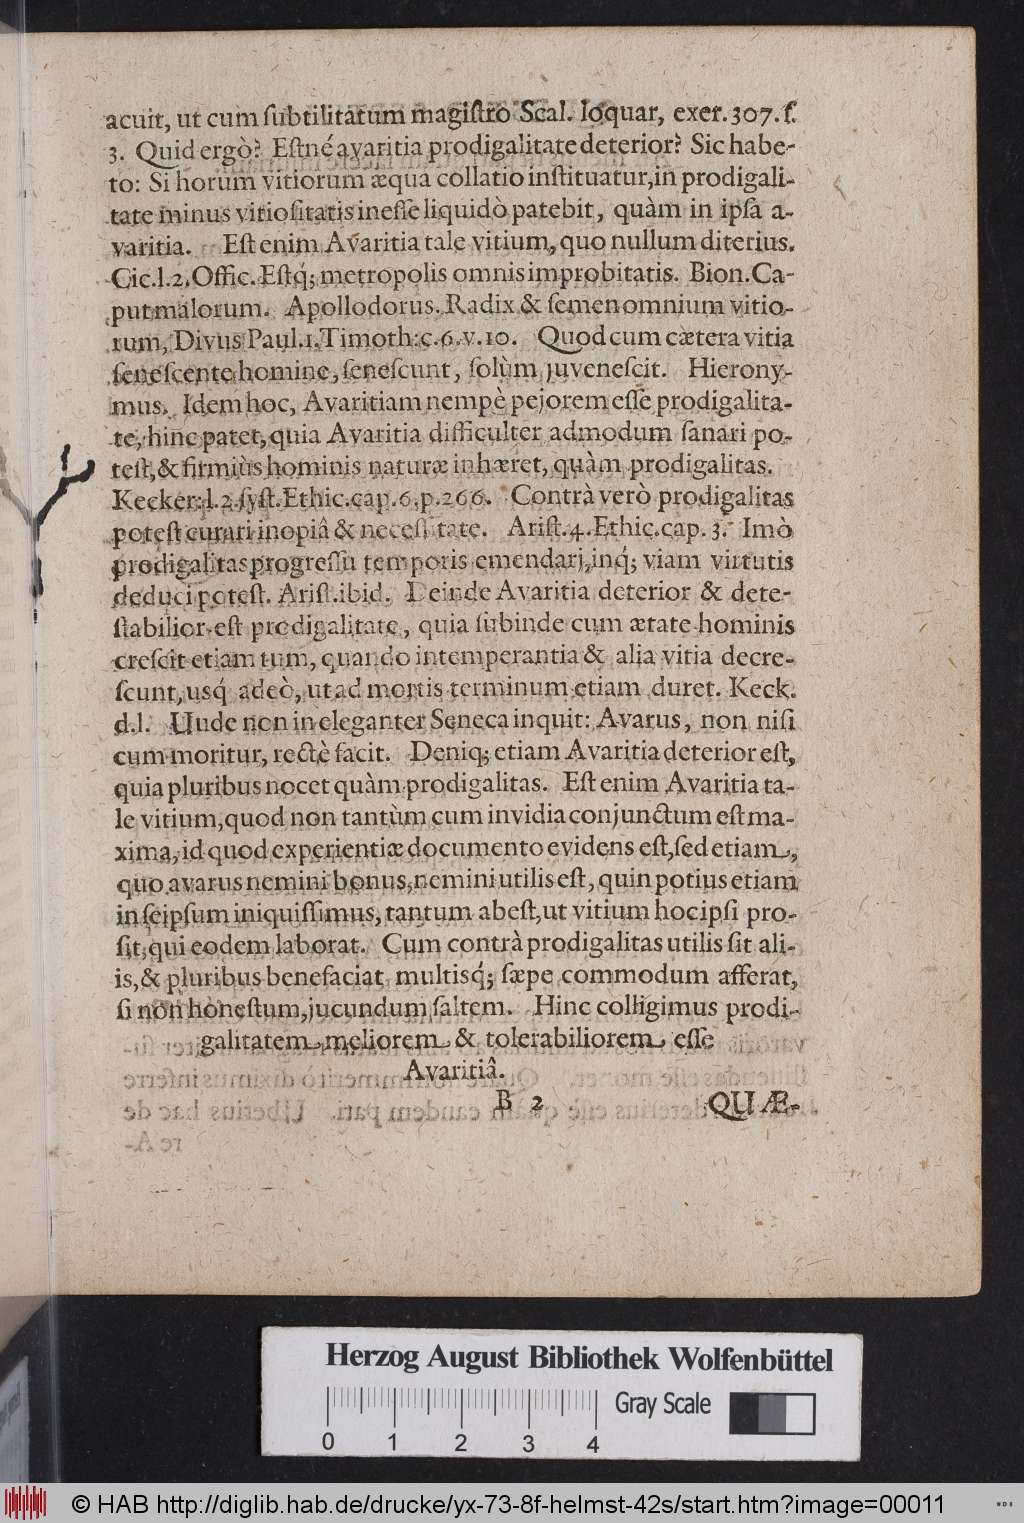 acuit, ut cum ſubtilitatum magiſtro Scal. loquar, exer. 307. ſ.
3. Quid ergò? Eſtné avaritia prodigalitate deterior? Sic habe-
to: Si horum vitiorum æqua collatio inſtituatur, in prodigali-
tate minus vitioſitatis ineſſe liquidò patebit, quàm in ipſa a-
varitia. Eſt enim Avaritia tale vitium, quo nullum diterius.
Cic. l. 2. Offic. Eſtq́; metropolis omnis improbitatis. Bion. Ca-
put malorum. Apollodorus. Radix & ſemen omnium vitio-
rum, Divus Paul. 1. Timoth: c. 6. v. 10. Quod cum cætera vitia
ſeneſcente homine, ſeneſcunt, ſolùm juveneſcit. Hierony-
mus. Idem hoc, Avaritiam nempè pejorem eſſe prodigalita-
te, hinc patet, quia Avaritia difficulter admodum ſanari po-
teſt, & firmiùs hominis naturæ inhæret, quàm prodigalitas.
Kecker: l. 2. ſyſt. Ethic. cap. 6. p. 266. Contrà verò prodigalitas
poteſt curari inopiâ & neceſſitate. Ariſt. 4. Ethic. cap. 3. Imò
prodigalitas progreſſu temporis emendari, inq́; viam virtutis
deduci poteſt. Ariſt. ibid. Deinde Avaritia deterior & dete-
ſtabilior eſt prodigalitate, quia ſubinde cum ætate hominis
creſcit etiam tum, quando intemperantia & alia vitia decre-
ſcunt, usq́ adeò, ut ad mortis terminum etiam duret. Keck.
d. l. Unde non ineleganter Seneca inquit: Avarus, non niſi
cum moritur, rectè facit. Deniq; etiam Avaritia deterior eſt,
quia pluribus nocet quàm prodigalitas. Eſt enim Avaritia ta-
le vitium, quod non tantùm cum invidia conjunctum eſt ma-
xima, id quod experientiæ documento evidens eſt, ſed etiam,
quo avarus nemini bonus, nemini utilis eſt, quin potius etiam
in ſeipſum iniquiſſimus, tantum abeſt, ut vitium hoc ipſi pro-
ſit, qui eodem laborat. Cum contrà prodigalitas utilis ſit ali-
is, & pluribus benefaciat, multisq́; ſæpe commodum afferat,
ſi non honeſtum, jucundum ſaltem. Hinc colligimus prodi-
galitatem meliorem & tolerabiliorem eſſe
Avaritiâ.
B 2 QUÆ-
Herzog August Bibliothek Wolfenbüttel
Gray Scale
0 1 2 3 4
© HAB http://diglib.hab.de/drucke/yx-73-8f-helmst-42s/start.htm?image=00011
WDB